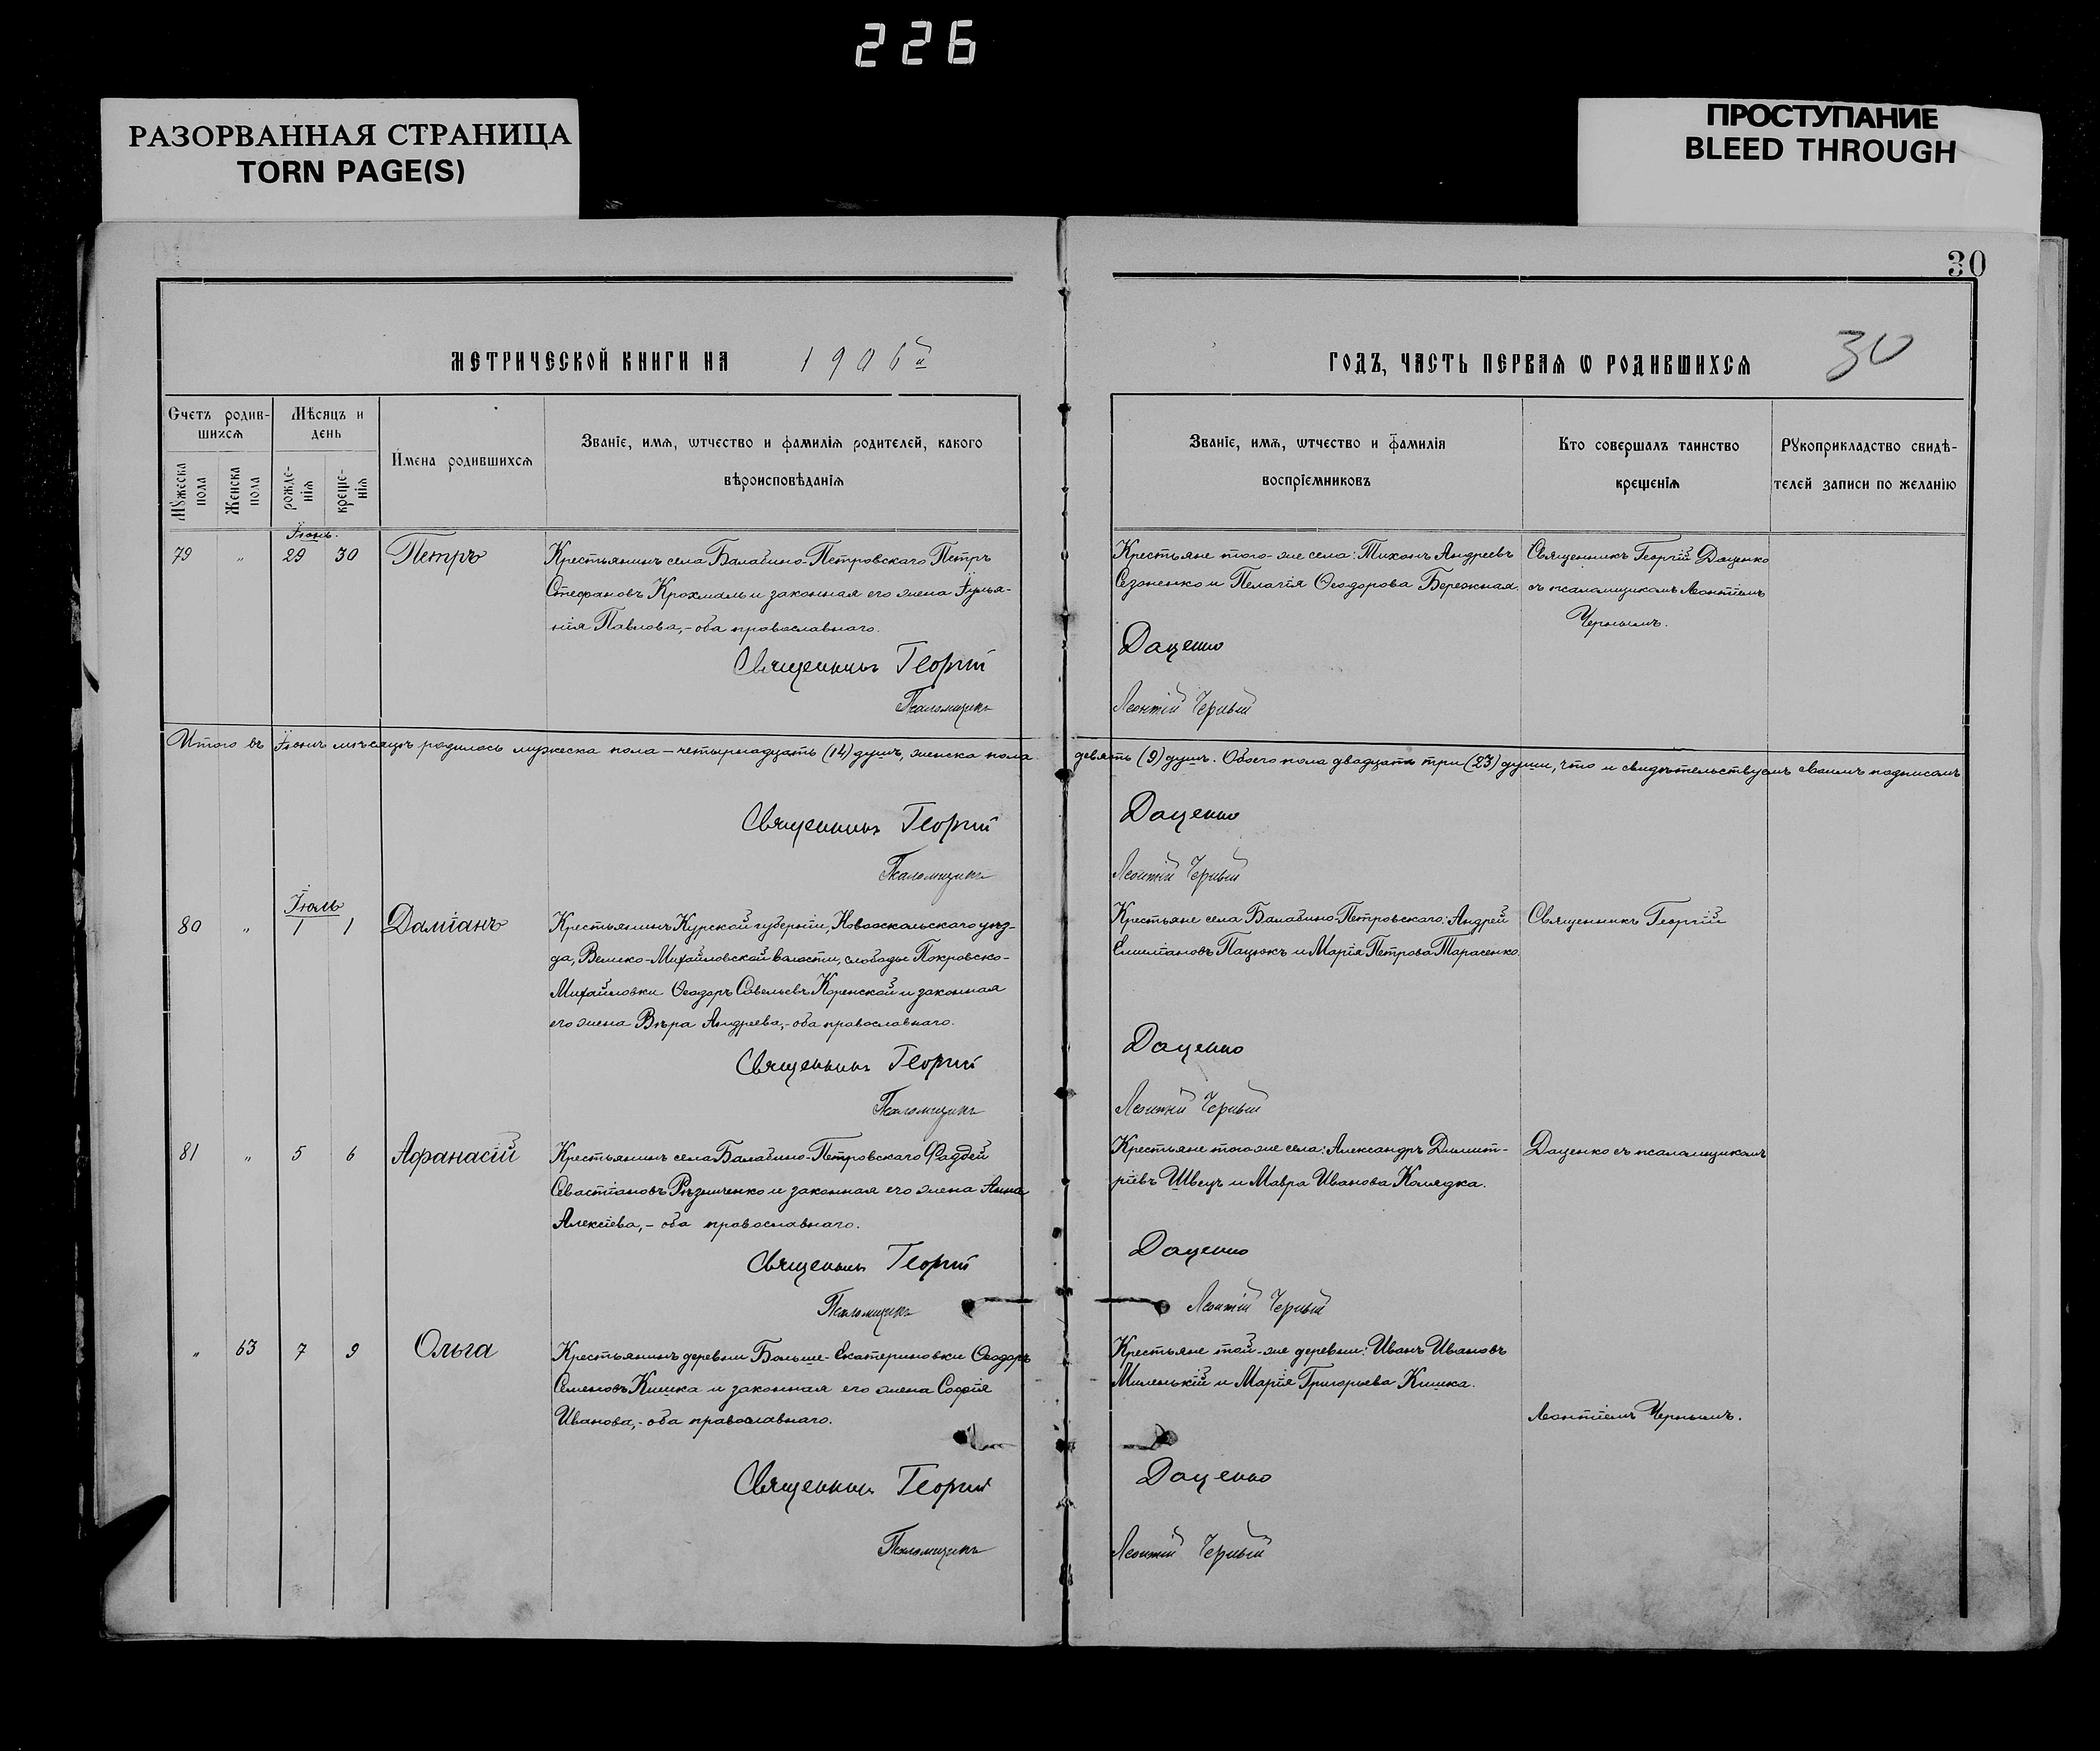 226
РАЗОРВАННАЯ СТРАНИЦА
TORN PAGE(S)
ПРОСТУПАНИЕ
BLEED THROUGH
30
МЕТРИЧЕСКОЙ КНИГИ НА 1906й
ГОДЪ, ЧАСТЬ ПЕРВАѦ Ѡ РОДИВШИХСѦ
30
Счетъ родив-
шихсѧ
Мѣсяцъ и
день
Мꙋжеска пола
Женска пола
рожде-
нїѧ
креще-
нїѧ
Имена родившихсѧ
Званїе, имѧ, ѡтчество и фамилїѧ родителей, какого
вѣроисповѣданїѧ
Званїе, имѧ, ѡтчество и фамилїѧ
воспрїемниковъ
Кто совершалъ таинство
крещенїѧ
Рꙋкоприкладство свидѣ-
телей записи по желанїю
Іюнь.
79 " 29 30 Петръ
Крестьянинъ села Балабино-Петровскаго Петръ
Стефановъ Крохмаль и законная его жена Іулья-
нія Павлова,- оба православнаго.
Священникъ Георгій
Псаломщикъ
Крестьяне того-же села: Тихонъ Андреевъ
Сезоненко и Пелагія Ѳеодорова Бережная.
Даценко
Леонтій Черный
Священникъ Георгій Даценко
съ псаломщикомъ Леонтіемъ
Чернымъ.
Итого въ Іюнѣ мѣсяцѣ родилось мужеска пола — четырнадцать (14) душъ, женска пола девять (9) душъ. Обоего пола двадцать три (23) души, что и свидѣтельствуемъ своимъ подписомъ
Священникъ Георгій Даценко
Псаломщикъ Леонтій Черный
Іюль
80 " 1 1 Даміанъ
Крестьянинъ Курской губерніи, Новооскольскаго уѣз-
да, Велико-Михайловской волости, слободы Покровско-
Михайловки Ѳеодоръ Савельевъ Коренской и законная
его жена Вѣра Андреева,- оба православнаго.
Священникъ Георгій
Псаломщикъ
Крестьяне села Балабино-Петровскаго: Андрей
Емиліановъ Пацюкъ и Марія Петрова Тарасенко.
Даценко
Леонтій Черный
Священникъ Георгій
81 " 5 6 Афанасій
Крестьянинъ села Балабино-Петровскаго Фаддей
Севастіановъ Рѣзниченко и законная его жена Анна
Алексіева,- оба православнаго.
Священникъ Георгій
Псаломщикъ
Крестьяне того же села: Александръ Димит-
ріевъ Швецъ и Мавра Иванова Колядка.
Даценко
Леонтій Черный
Даценко съ псаломщикомъ
" 63 7 9 Ольга
Крестьянинъ деревни Больше-Екатериновки Ѳеодоръ
Семеновъ Кишка и законная его жена Софія
Иванова,- оба православнаго.
Священникъ Георгій
Псаломщикъ
Крестьяне той-же деревни: Иванъ Ивановъ
Миленькій и Марія Григорьева Кишка.
Даценко
Леонтій Черный
Леонтіемъ Чернымъ.